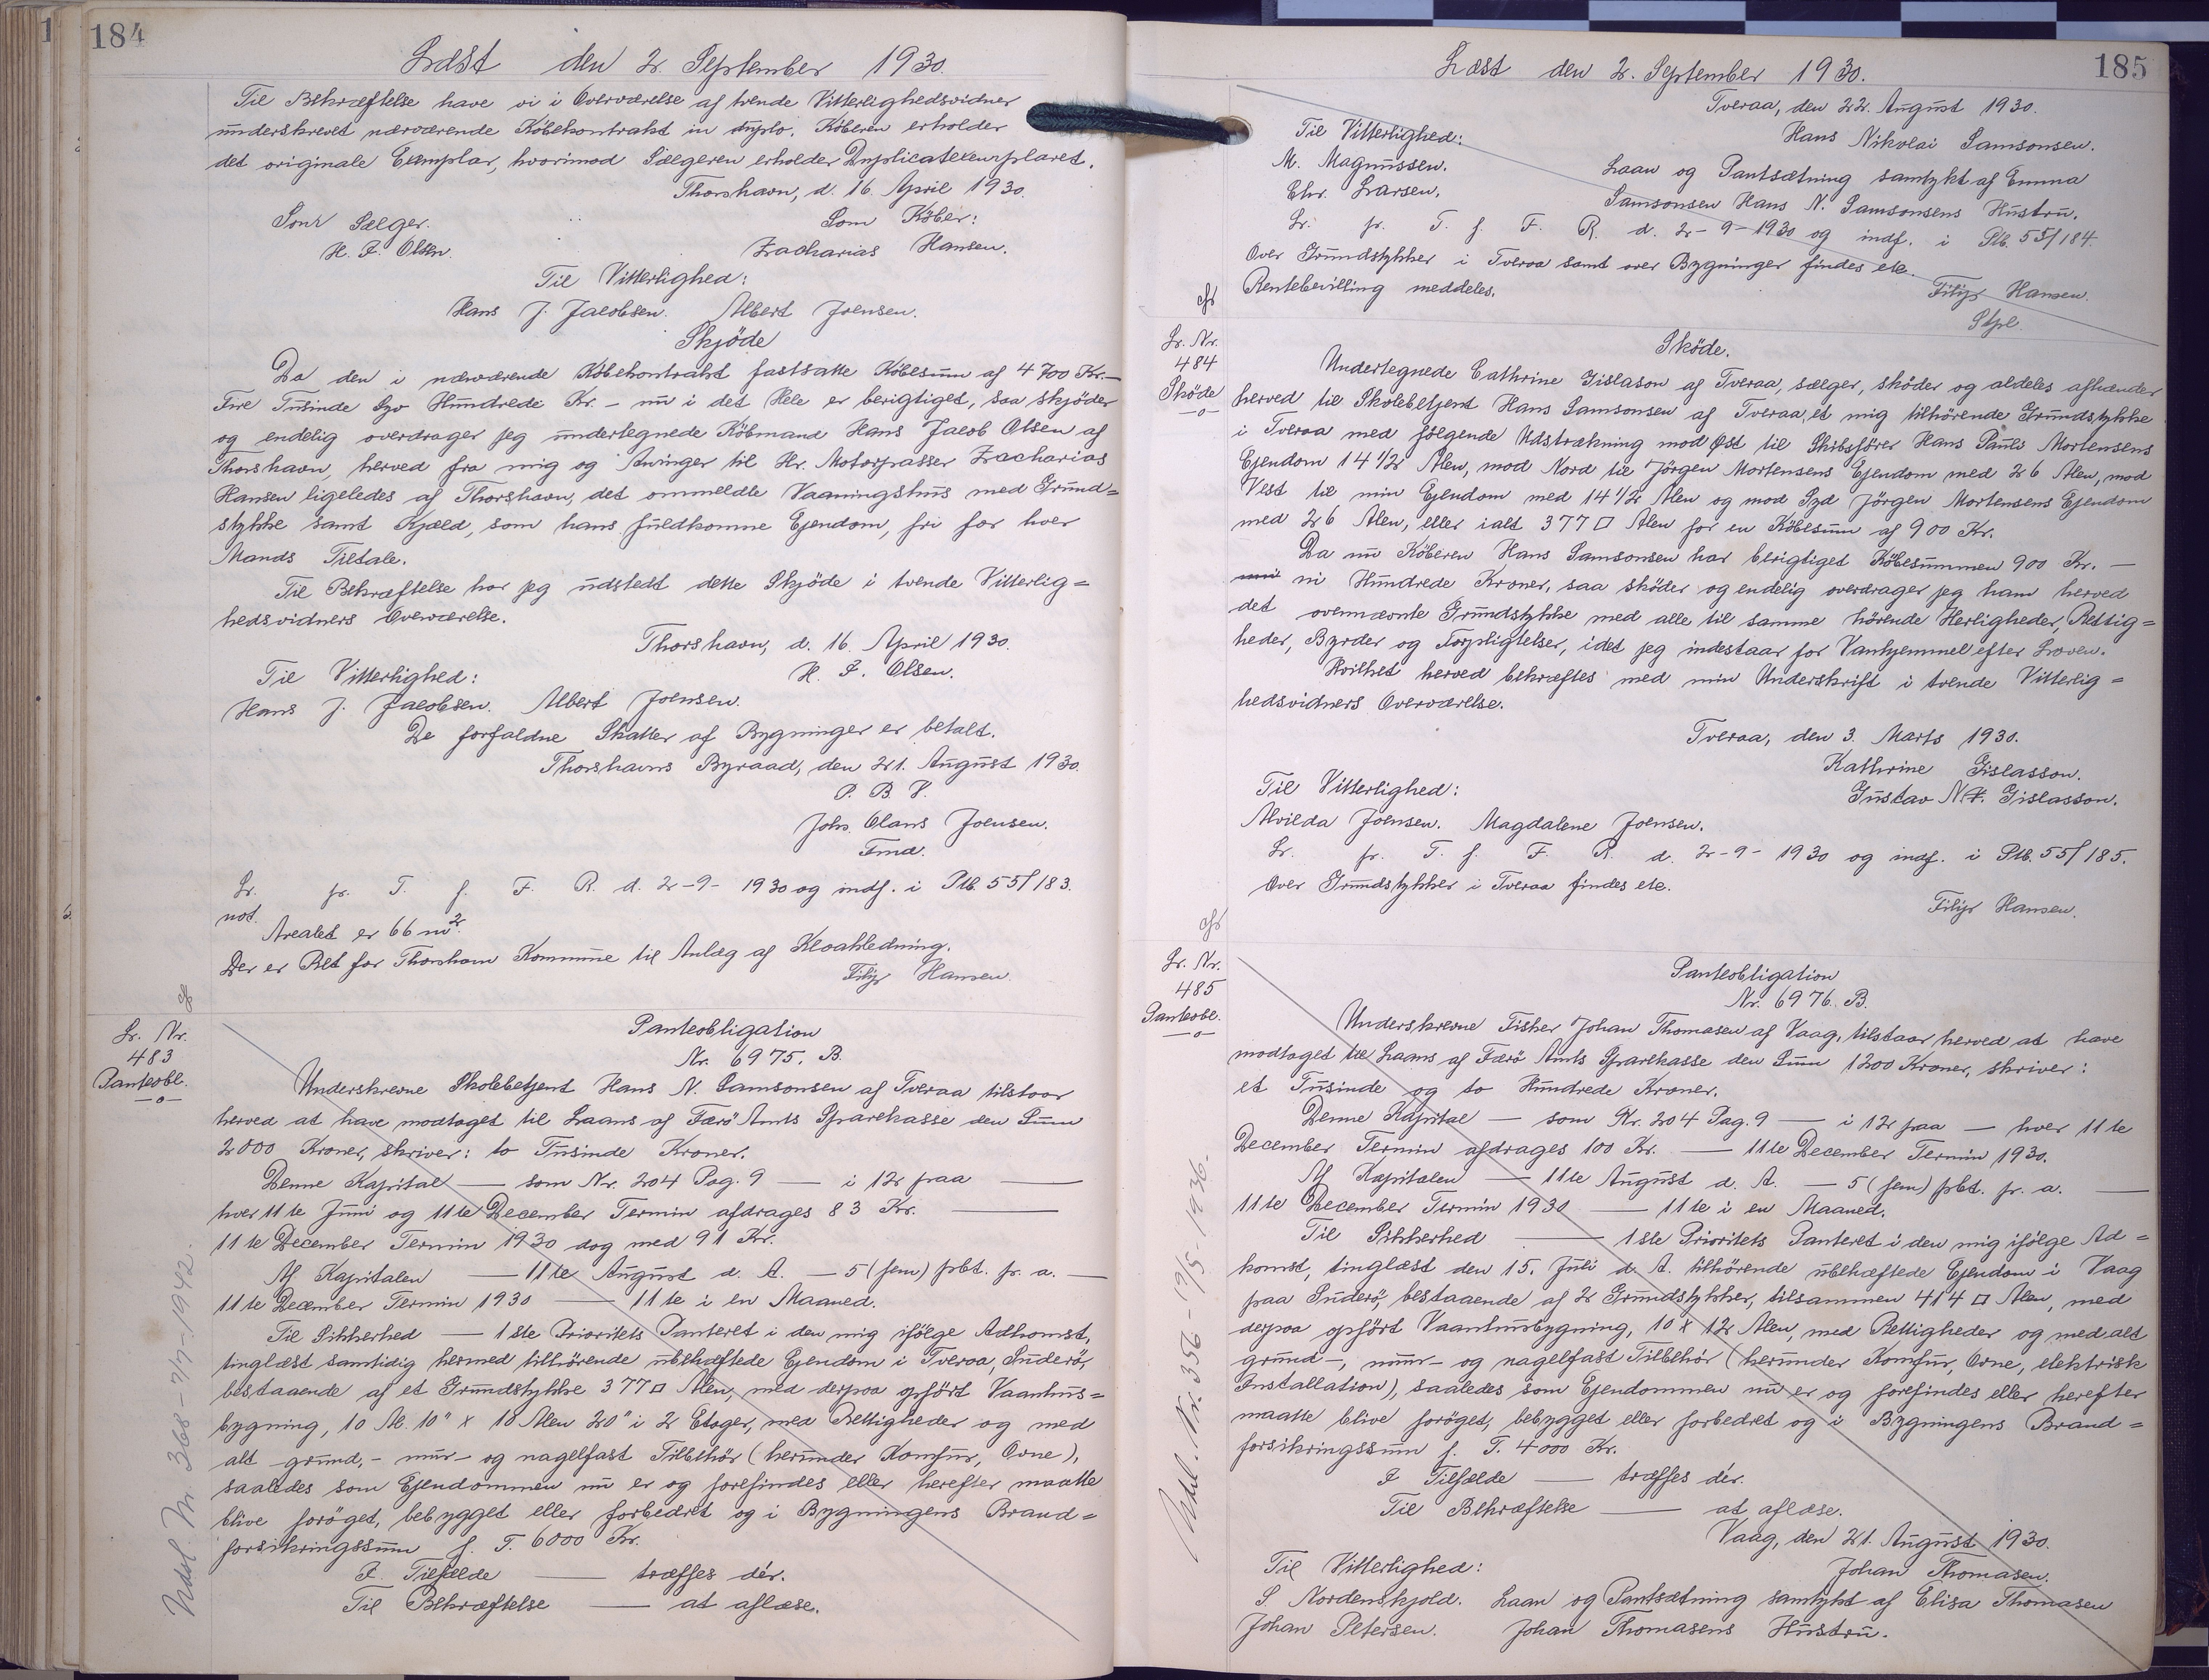 184
Læst den 2. September 1930.
Til Bekræftelse have vi i Overværelse af tvende Vitterlighedsvidner
underskrevet nærværende Købekontrakt in duplo. Köberen erholder
det originale Exemplar, hvorimod Sælgeren erholder Duplicatexemplaret.
Thorshavn, d. 16. April 1930.
Som Sælger. Som Köber:
H. J. Olsen. Zacharias Hansen.
Til Vitterlighed:
Hans J. Jacobsen. Albert Joensen.
Skjöde
Da den i nærværende Köbekontrakt fastsatte Köbesum af 4700 Kr. —
Fire Tusinde Syv Hundrede Kr. — nu i det Hele er berigtiget, saa skjöder
og endelig overdrager jeg undertegnede Köbmand Hans Jacob Olsen af
Thorshavn, herved fra mig og Arvinger til Hr. Motorpasser Zacharias
Hansen ligeledes af Thorshavn, det ommeldte Vaaningshus med Grund=
stykke samt Kjæld, som hans fuldkomne Ejendom, fri for hver
Mands Tiltale.
Til Bekræftelse har jeg udstedt dette Skjöde i tvende Vitterlig=
hedsvidners Overværelse.
Thorshavn, d. 16. April 1930.
Til Vitterlighed: H. J. Olsen.
Hans J. Jacobsen. Albert Joensen.
De forfaldne Skatter af Bygninger er betalt.
Thorshavns Byraad, den 21. August 1930.
P. B. V.
Johs. Olaus Joensen.
Fmd.
Lr. fr. T. f. F. R. d. 2-9-1930 og indf. i Ptb. 55f/183.
not.
Arealet er 66 m².
Der er Ret for Thorshavn Kommune til Anlæg af Kloakledning.
Filip Hansen.
Lr. Nr.
483
Panteobl.
—o—
Panteobligation
Nr. 6975. B.
Underskrevne Skolebetjent Hans N. Samsonsen af Tveraa tilstaar
herved at have modtaget til Laans af Færö Amts Sparekasse den Sum
2000 Kroner, skriver: to Tusinde Kroner.
Denne Kapital — som Nr. 204 Pag. 9 — i 12 paa —
hver 11te Juni og 11te December Termin afdrages 83 Kr. —
11te December Termin 1930 dog med 91 Kr.
Af Kapitalen — 11te August d. A. — 5 (fem) pbt. pr. a. —
11te December Termin 1930 — 11te i en Maaned.
Til Sikkerhed — 1ste Prioritets Panteret i den mig ifölge Adkomst,
tinglæst samtidig hermed tilhörende ubehæftede Ejendom i Tveraa, Suderö,
bestaaende af et Grundstykke 377 □ Alen, med derpaa opfört Vaanhus=
bygning, 10 Al. 10" x 10 Alen 20" i 2 Etager, med Rettigheder og med
alt grund,- mur- og nagelfast Tilbehör (herunder Komfur, Ovne),
saaledes som Ejendommen nu er og forefindes eller herefter maatte
blive foröget, bebygget eller forbedret og i Bygningens Brand=
forsikringssum f. T. 6000 Kr.
I Tilfælde — træffes dér.
Til Bekræftelse — at aflæse.
Udsl. Nr. 368 - 7/7 - 1942.
185
Læst den 2. September 1930.
Tveraa, den 22. August 1930.
Til Vitterlighed: Hans Nikolai Samsonsen.
M. Magnussen. Laan og Pantsætning samtykt af Emma
Chr. Larsen. Samsonsen Hans N. Samsonsens Hustru.
Lr. fr. T. f. F. R. d. 2-9-1930 og indf. i Ptb. 55f/184.
Over Grundstykker i Tveraa samt over Bygninger findes etc.
Rentebevilling meddeles.
Filip Hansen.
Stpl.
Lr. Nr.
484
Sköde
—o—
Sköde.
Undertegnede Cathrine Gislason af Tveraa, sælger, sköder og aldeles afhænder
herved til Skolebetjent Hans Samsonsen af Tveraa, et mig tilhörende Grundstykke
i Tveraa med fölgende Udstrækning mod Øst til Skibsförer Hans Pauli Mortensens
Ejendom 14 1/2 Alen, mod Nord til Jörgen Mortensens Ejendom med 26 Alen, mod
Vest til min Ejendom med 14 1/2 Alen og mod Syd Jörgen Mortensens Ejendom
med 26 Alen, eller ialt 377 □ Alen for en Köbesum af 900 Kr.
Da nu Köberen Hans Samsonsen har berigtiget Köbesummen 900 Kr. —
ni Hundrede Kroner, saa sköder og endelig overdrager jeg ham herved
det ovennævnte Grundstykke med alle til samme hörende Herligheder, Rettig=
heder, Byrder og Forpligtelser, idet jeg indestaar for Vanhjemmel efter Loven.
Hvilket herved bekræftes med min Underskrift i tvende Vitterlig=
hedsvidners Overværelse.
Tveraa, den 3. Marts 1930.
Kathrine Gislasson.
Til Vitterlighed: Gustav N. Gislasson.
Alvilda Joensen. Magdalene Joensen.
Lr. fr. T. f. F. R. d. 2-9-1930 og indf. i Ptb. 55f/185.
Over Grundstykker i Tveraa findes etc.
Filip Hansen.
Lr. Nr.
485
Panteobl.
—o—
Panteobligation
Nr. 6976. B.
Underskrevne Fisker Johan Thomasen af Vaag, tilstaar herved at have
modtaget til Laans af Færö Amts Sparekasse den Sum 1200 Kroner, skriver:
et Tusinde og to Hundrede Kroner.
Denne Kapital — som Nr. 204 Pag. 9 — i 12 paa — hver 11te
December Termin afdrages 100 Kr. — 11te December Termin 1930.
Af Kapitalen — 11te August d. A. — 5 (fem) pbt. pr. a. —
11te December Termin 1930 — 11te i en Maaned.
Til Sikkerhed — 1ste Prioritets Panteret i den mig ifölge Ad=
komst, tinglæst den 15. Juli d. A. tilhörende ubehæftede Ejendom i Vaag
paa Suderö, bestaaende af 2 Grundstykker, tilsammen 414 □ Alen, med
derpaa opfört Vaanhusbygning, 10 x 12 Alen, med Rettigheder og med alt
grund-, muur- og nagelfast Tilbehör (herunder Komfur, Ovne, elektrisk
Installation), saaledes som Ejendommen nu er og forefindes eller herefter
maatte blive foröget, bebygget eller forbedret og i Bygningens Brand=
forsikringssum f. T. 4000 Kr.
I Tilfælde — træffes dér.
Til Bekræftelse — at aflæse.
Vaag, den 21. August 1930.
Til Vitterlighed: Johan Thomasen.
S. Nordenskjold. Laan og Pantsætning samtykt af Elisa Thomasen
Johan Petersen. Johan Thomasens Hustru.
Udsl. Nr. 356 - 19/5 - 1936.